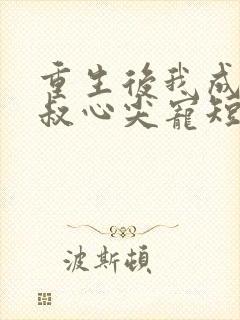 重生後我成
叔心尖寵短
波斯頓